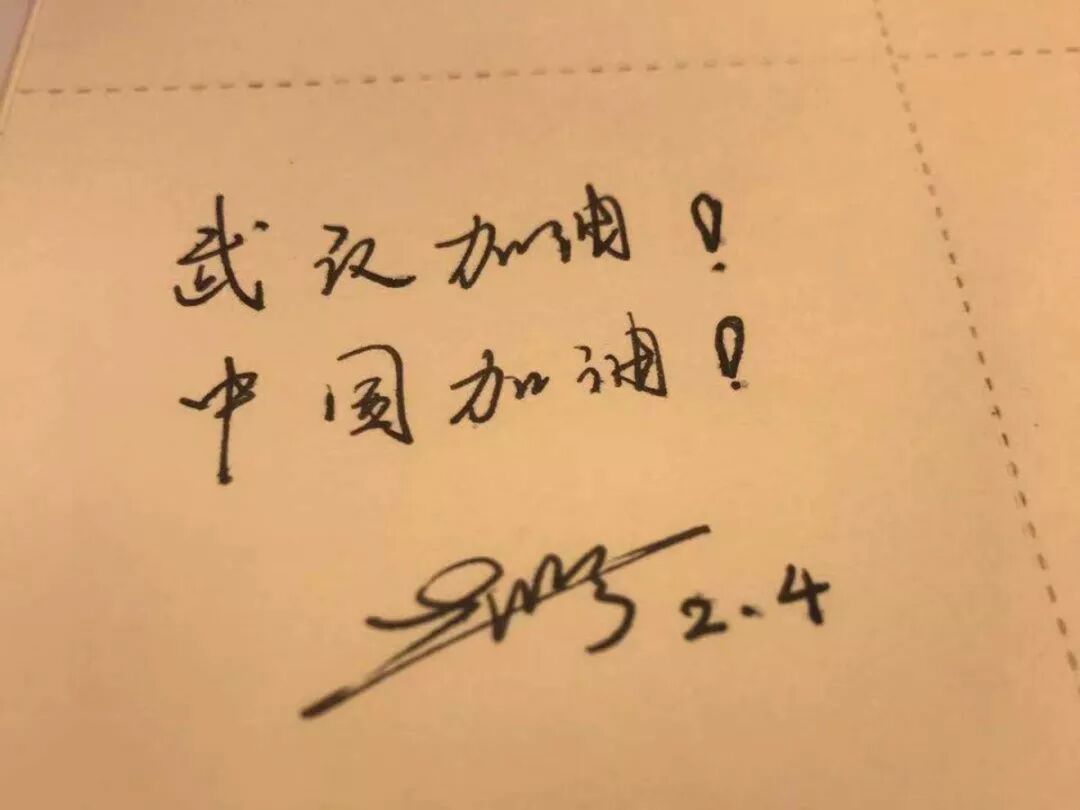 武汉加油！
中国加油！
2.4